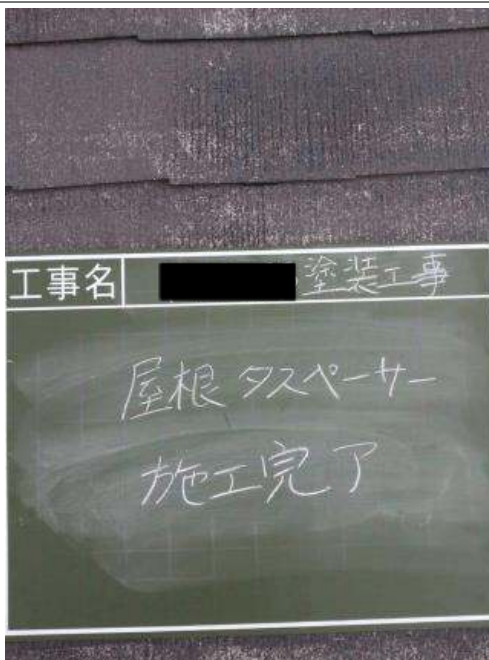 工事名 塗装工事
屋根タスペーサー
施工完了